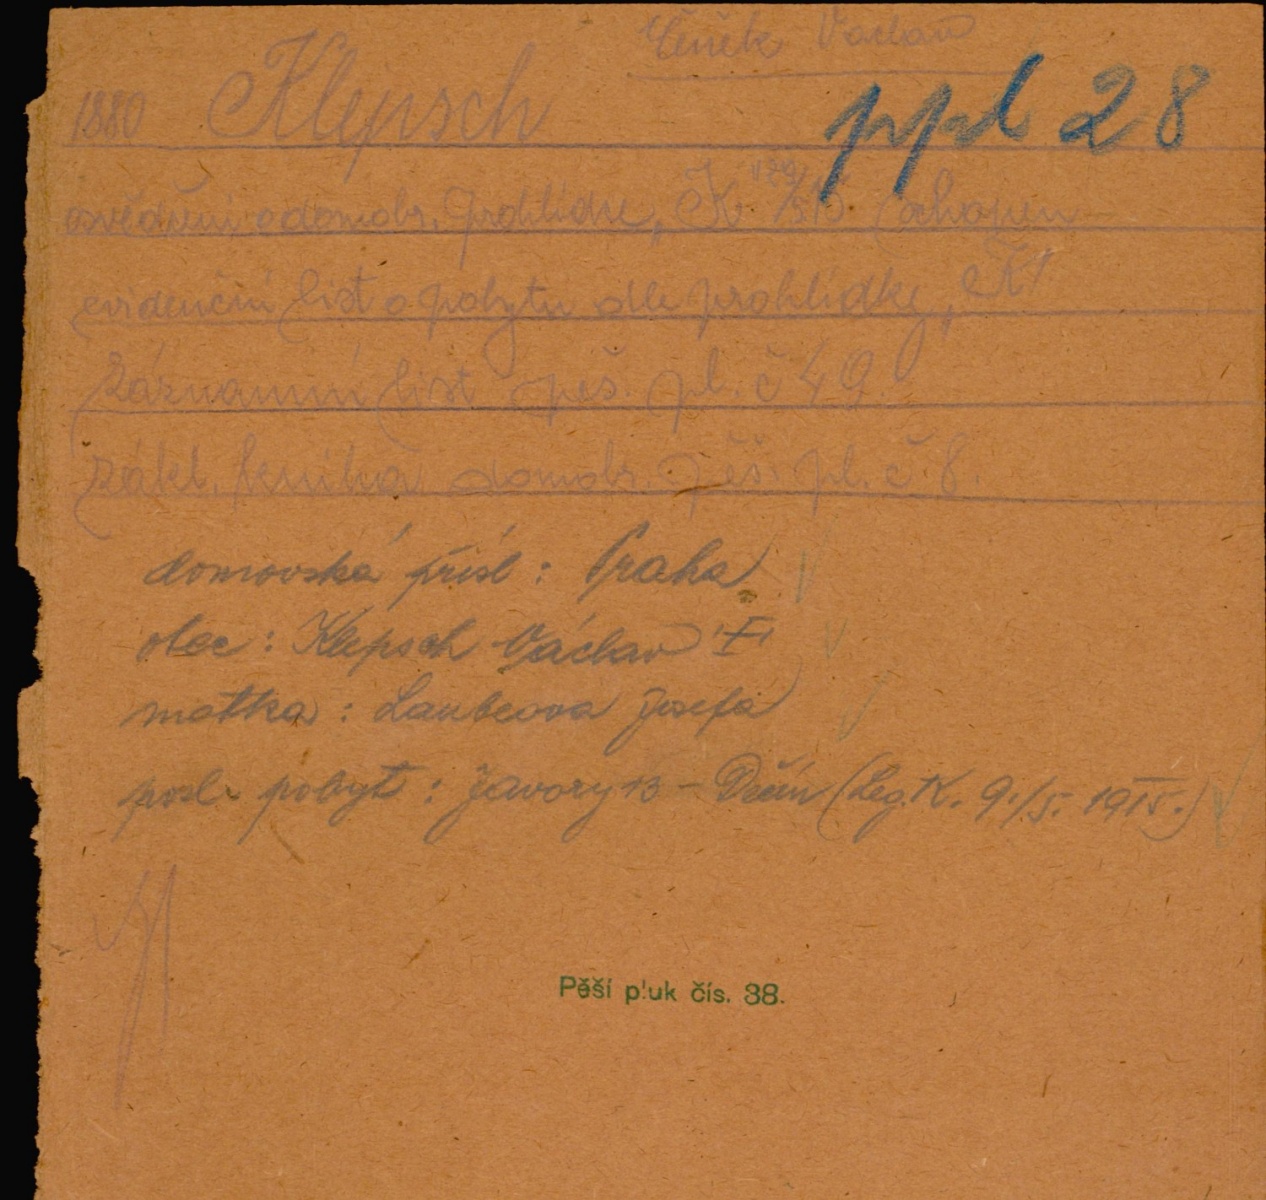 Čeněk Václav
1880 Klepsch
ppl 28
osvědčení o domobr. prohlídce „K" /515 schopen
evidenční list o pobytu dle prohlídky „K"
záznamní list pěš. pl. č 49
zákl. kniha domobr. pěš. pl. č. 8.
domovská přísl : Praha
otec : Klepsch Václav
matka : Laubeova Josefa
posl. pobyt : Javory 13 - Děčín (Leg. K. 9./5. 1915.)
Pěší pluk čís. 38.